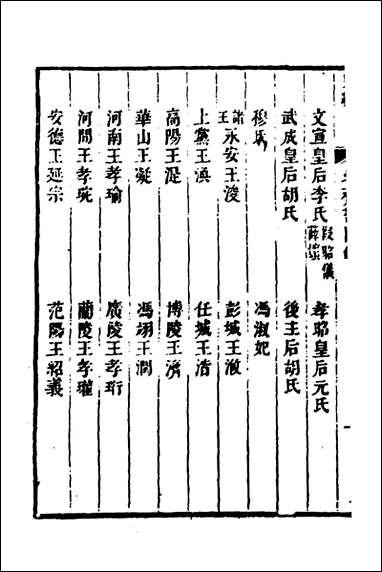 文宣皇后李氏 段昭儀 薛嬪 孝昭皇后元氏
武成皇后胡氏 後主后胡氏
穆氏 馮淑妃
諸王 永安王浚 彭城王浟
上黨王渙 任城王湝
高陽王湜 博陵王濟
華山王凝 馮翊王潤
河南王孝瑜 廣陵王孝珩
河間王孝琬 蘭陵王孝瓘
安德王延宗 范陽王紹義